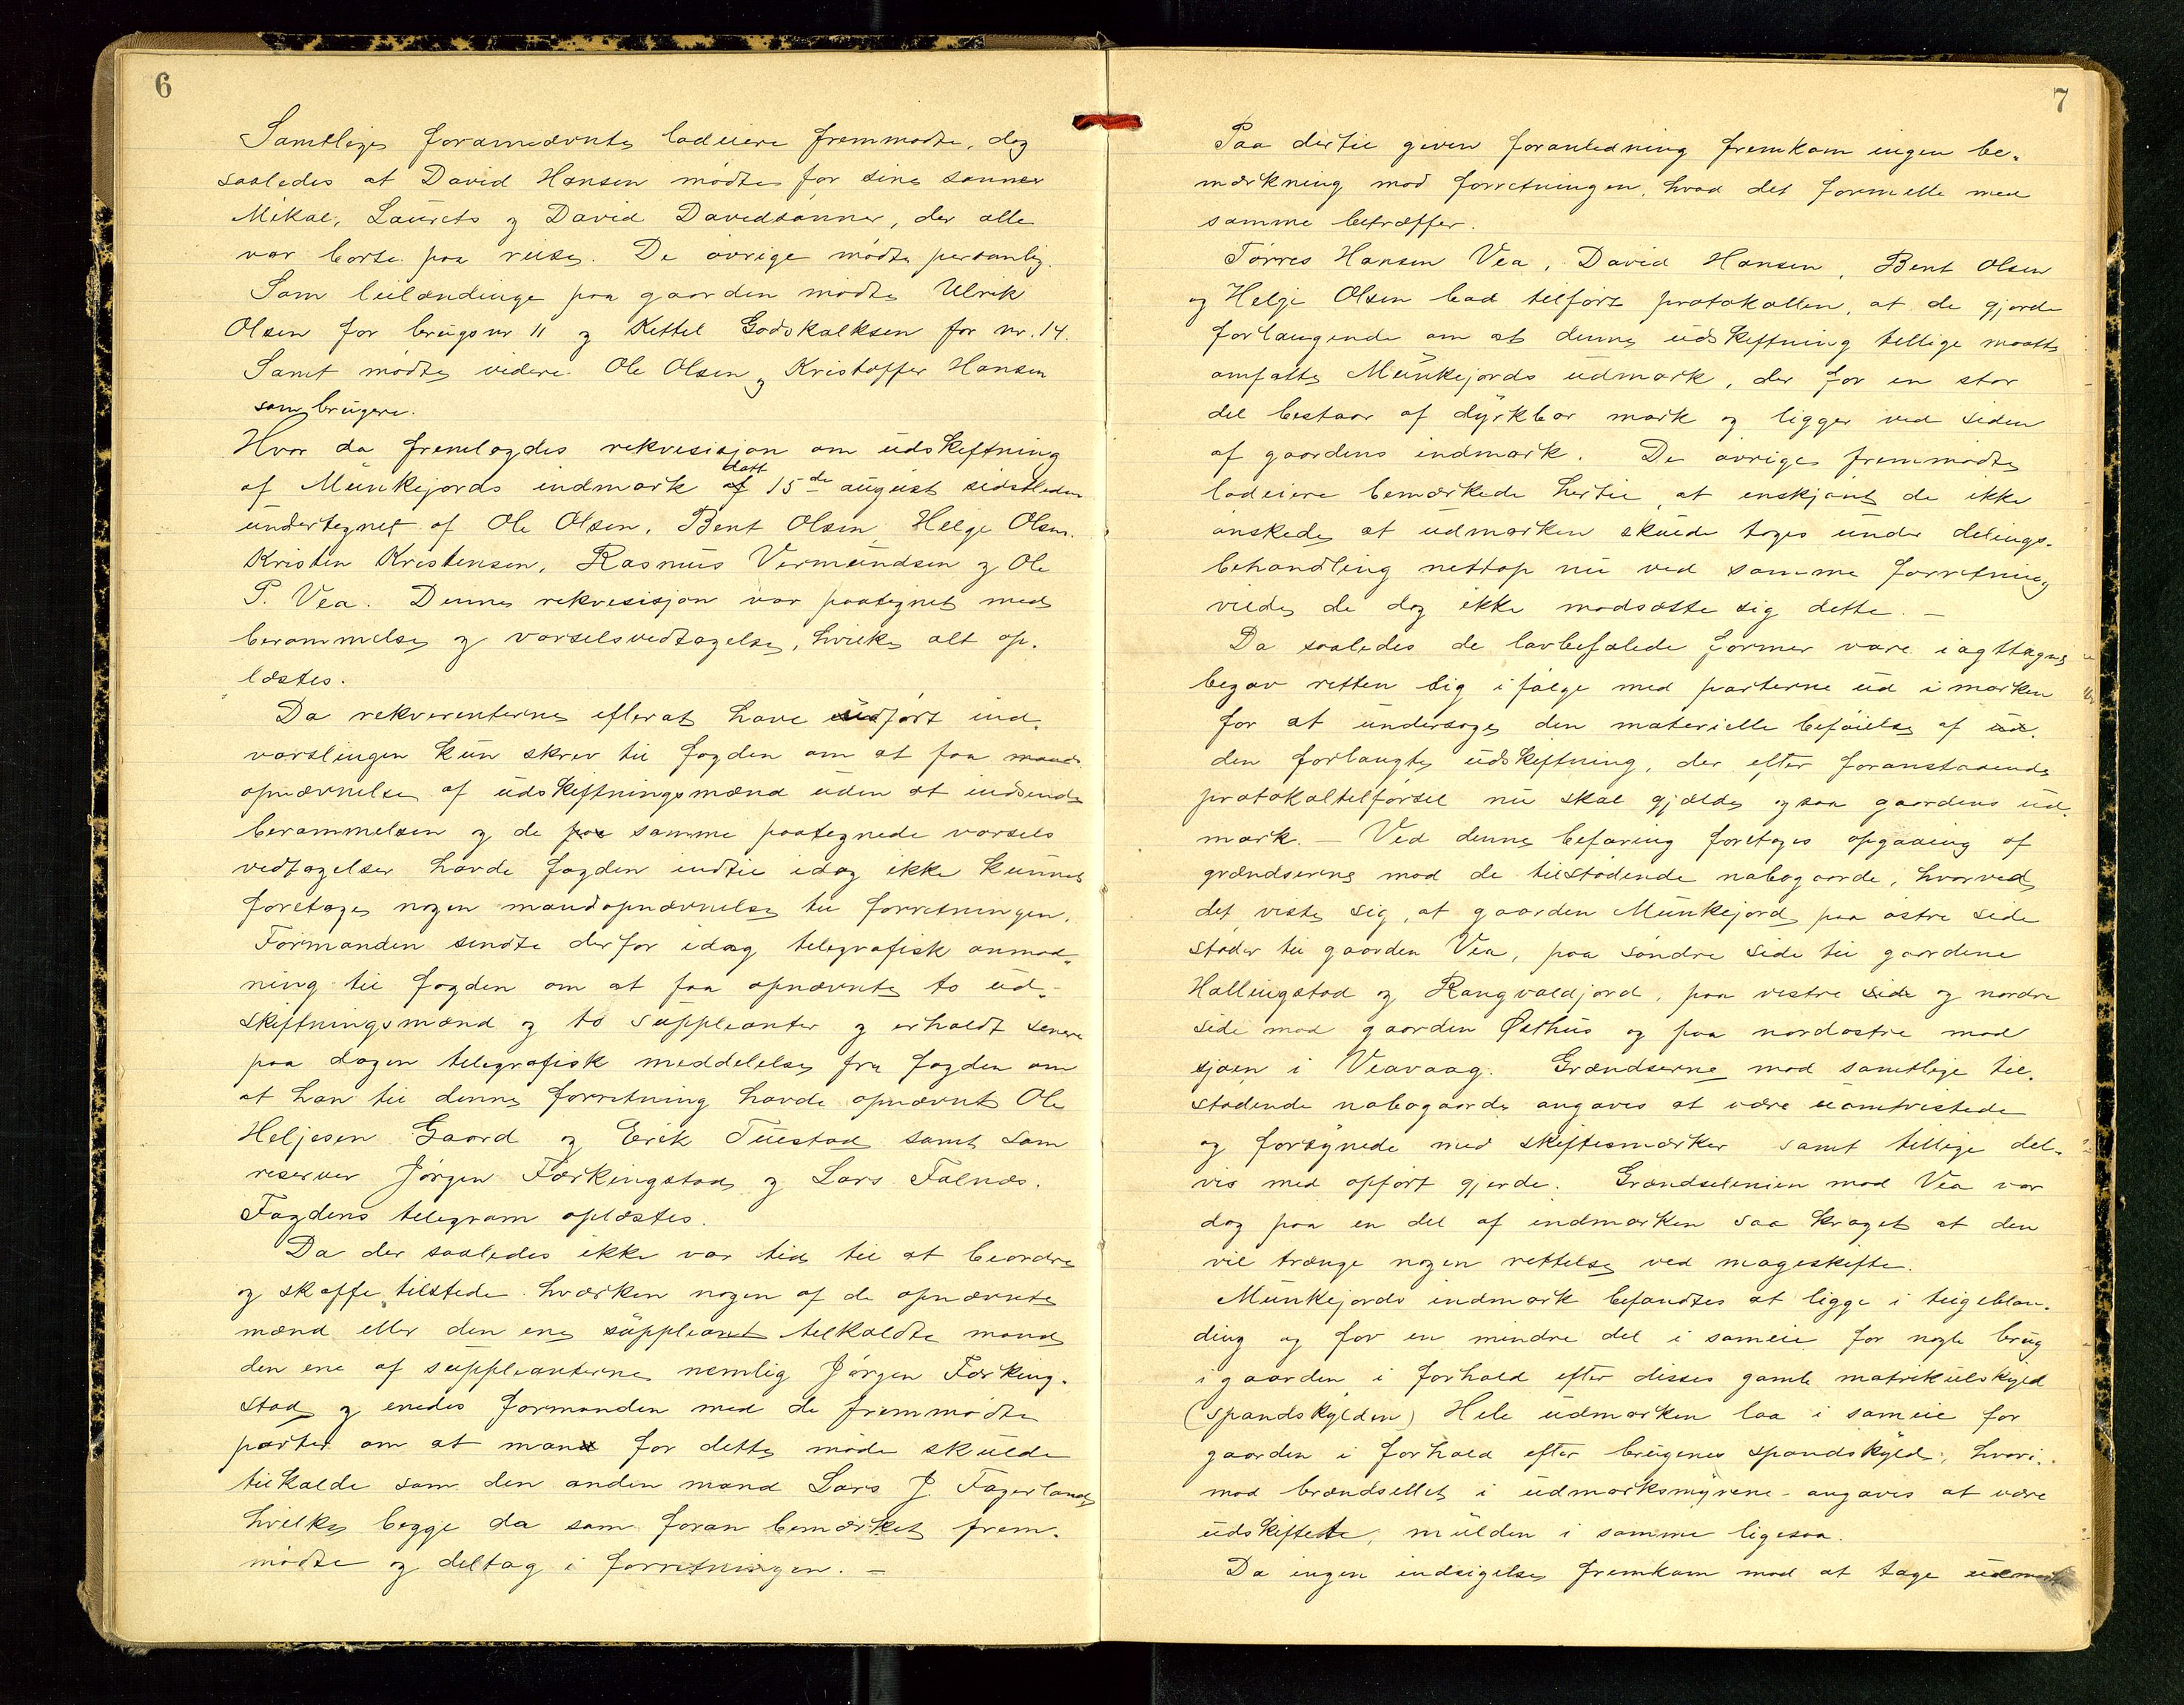 6
Samtlige forannævnte lodeiere fremmødte, dog
saaledes at David Hansen mødte for sine sønner
Mikal, Laurits og David Davidsønner, der alle
var borte paa reise. De øvrige mødte personlig.
Som leilændinge paa gaarden mødte Ulrik
Olsen for brugsnr 11 og Kettel Godskalksen for nr. 14.
Samt mødte videre Ole Olsen og Kristoffer Hansen
som brugere.
Hvor da fremlagdes rekvisisjon om udskiftning
af Munkejords indmark af datt 15de august sidstleden
undertegnet af Ole Olsen, Bent Olsen, Helge Olsen,
Kristen Kristensen, Rasmus Vermundsen og Ole
P. Vea. Denne rekvisisjon var paategnet med
berammelse og varselsvedtagelse, hvilke alt op-
læstes.
Da rekverenterne efterat have udført ind-
varslingen kun skrev til fogden om at faa mands
opnævnelse af udskiftningsmænd uden at indsende
berammelsen og de paa samme paategnede varsels
vedtagelser havde fogden indtil idag ikke kunnet
foretage nogen mandsopnævnelse til forretningen.
Formanden sendte derfor idag telegrafisk anmod-
ning til fogden om at faa opnævnte to ud-
skiftningsmænd og to suppleanter og erholdt senere
paa dagen telegrafisk meddelelse fra fogden om
at han til denne forretning havde opnævnt Ole
Heljesen Gaard og Erik Tuestad samt som
reserver Jørgen Førkingstad og Lars Falnæs.
Fogdens telegram oplæstes.
Da der saaledes ikke var tid til at beordre
og skaffe tilstede hværken nogen af de opnævnte
mænd eller den ene suppleant tilkaldte mand
den ene af suppleanterne nemlig Jørgen Førking-
stad og enedes formanden med de fremmødte
parter om at man for dette møde skulde
tilkalde som den anden mand Lars J. Fagerland
hvilke begge da som foran bemærket frem-
mødte og deltog i forretningen. —
7
Paa dertil given foranledning fremkom ingen be-
mærkning mod forretningen, hvad det formelle med
samme betræffer.
Tørres Hansen Vea, David Hansen, Bent Olsen
og Helje Olsen bad tilført protokollen, at de gjorde
forlangende om at denne udskiftning tillige maatte
omfatte Munkejords udmark, der for en stor
del bestaar af dyrkbar mark og ligger ved siden
af gaardens indmark. De øvrige fremmødte
lodeiere bemærkede hertil at enskjønt de ikke
ønskede at udmarken skulde tages under delings-
behandling nettop nu ved samme forretning
vilde de dog ikke modsætte sig dette. —
Da saaledes de lovbefalede former vare iagttagne
begav retten sig ifølge med parterne ud i marken
for at undersøge den materielle beføielse af ud-
den forlangte udskiftning, der efter foranstaaende
protokoltilførsel nu skal gjælde ogsaa gaardens ud-
mark. — Ved denne befaring foretoges opgaaing af
grændserne mod de tilstødende nabogaarde, hvorved
det viste sig, at gaarden Munkejord paa østre side
støder til gaarden Vea, paa søndre side til gaardene
Hallingstad og Rangvaldjord, paa vestre side og nordre
side mod gaarden Østhus og paa nordøstre mod
sjøen i Veavaag. Grændserne mod samtlige til-
stødende nabogaarde angaves at være uomtvistede
og forsynede med skiftesmærker samt tillige del-
vis med opført gjerde. Grændselinien mod Vea var
dog paa en del af indmarken saa kroget at den
vil trænge nogen rettelse ved mageskifte.
Munkejords indmark befandtes at ligge i teigeblan-
ding og for en mindre del i sameie for nogle brug
i gaarden i forhold efter disses gamle matrikulskyld
(spandskylden) Hele udmarken laa i sameie for
gaarden i forhold efter brugenes spandskyld, hvori-
mod brændsellet i udmarksmyrene angaves at være
udskiftete, mulden i samme ligesaa.
Da ingen indsigelse fremkom mod at tage udmark